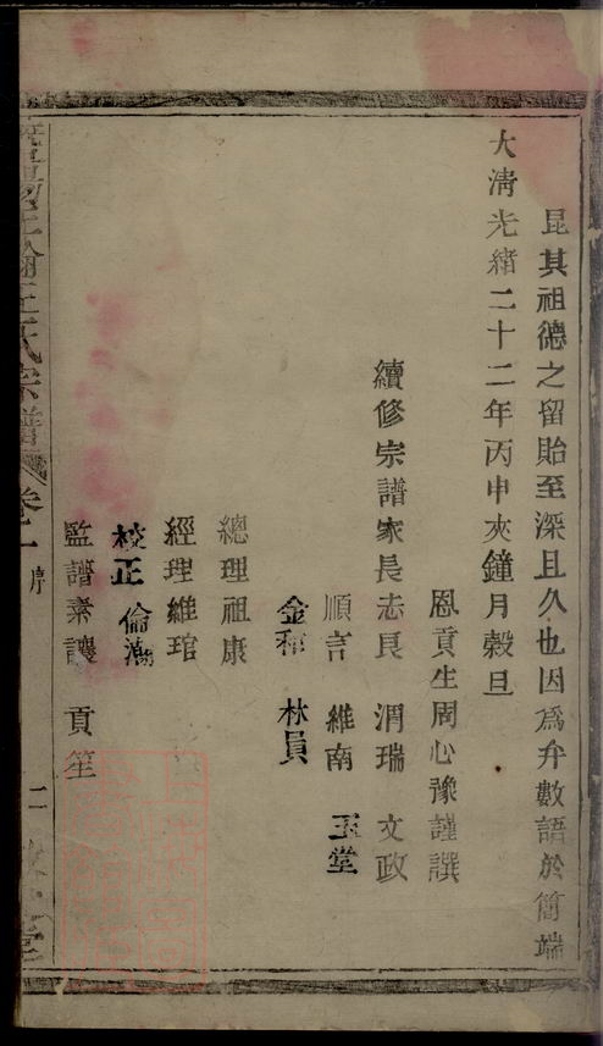 昆其祖德之留貽至深且久也因爲弁數語於簡端
大淸光緒二十二年丙申夾鐘月榖旦
恩貢生周心豫謹譔
續修宗譜家長志良 渭瑞 文政
順言 維南 玉堂
金和 林員
總理祖康
經理維琯
校正 倫瀚
監譜素讓 貢笙
王氏宗譜 卷一 序 二